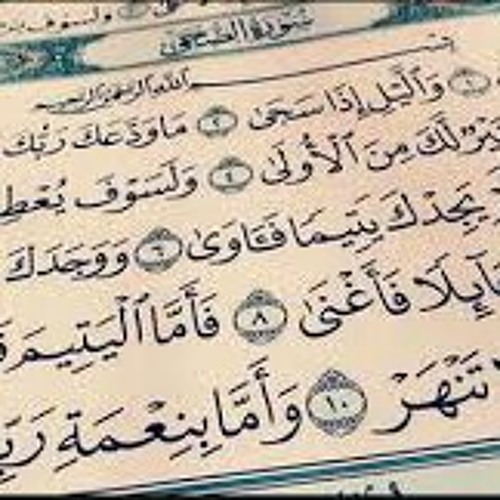 وَلَسَوْفَ
سُورَةُ الضُّحَىٰ
بِسْمِ اللَّهِ الرَّحْمَٰنِ الرَّحِيمِ
١ وَٱلَّيْلِ إِذَا سَجَىٰ ٢ مَا وَدَّعَكَ رَبُّكَ
لَّكَ مِنَ ٱلْأُولَىٰ ٤ وَلَسَوْفَ
يَجِدْكَ يَتِيمًا فَـَٔاوَىٰ ٦ وَوَجَدَكَ
فَأَغْنَىٰ ٨ فَأَمَّا ٱلْيَتِيمَ
تَنْهَرْ ١٠ وَأَمَّا بِنِعْمَةِ